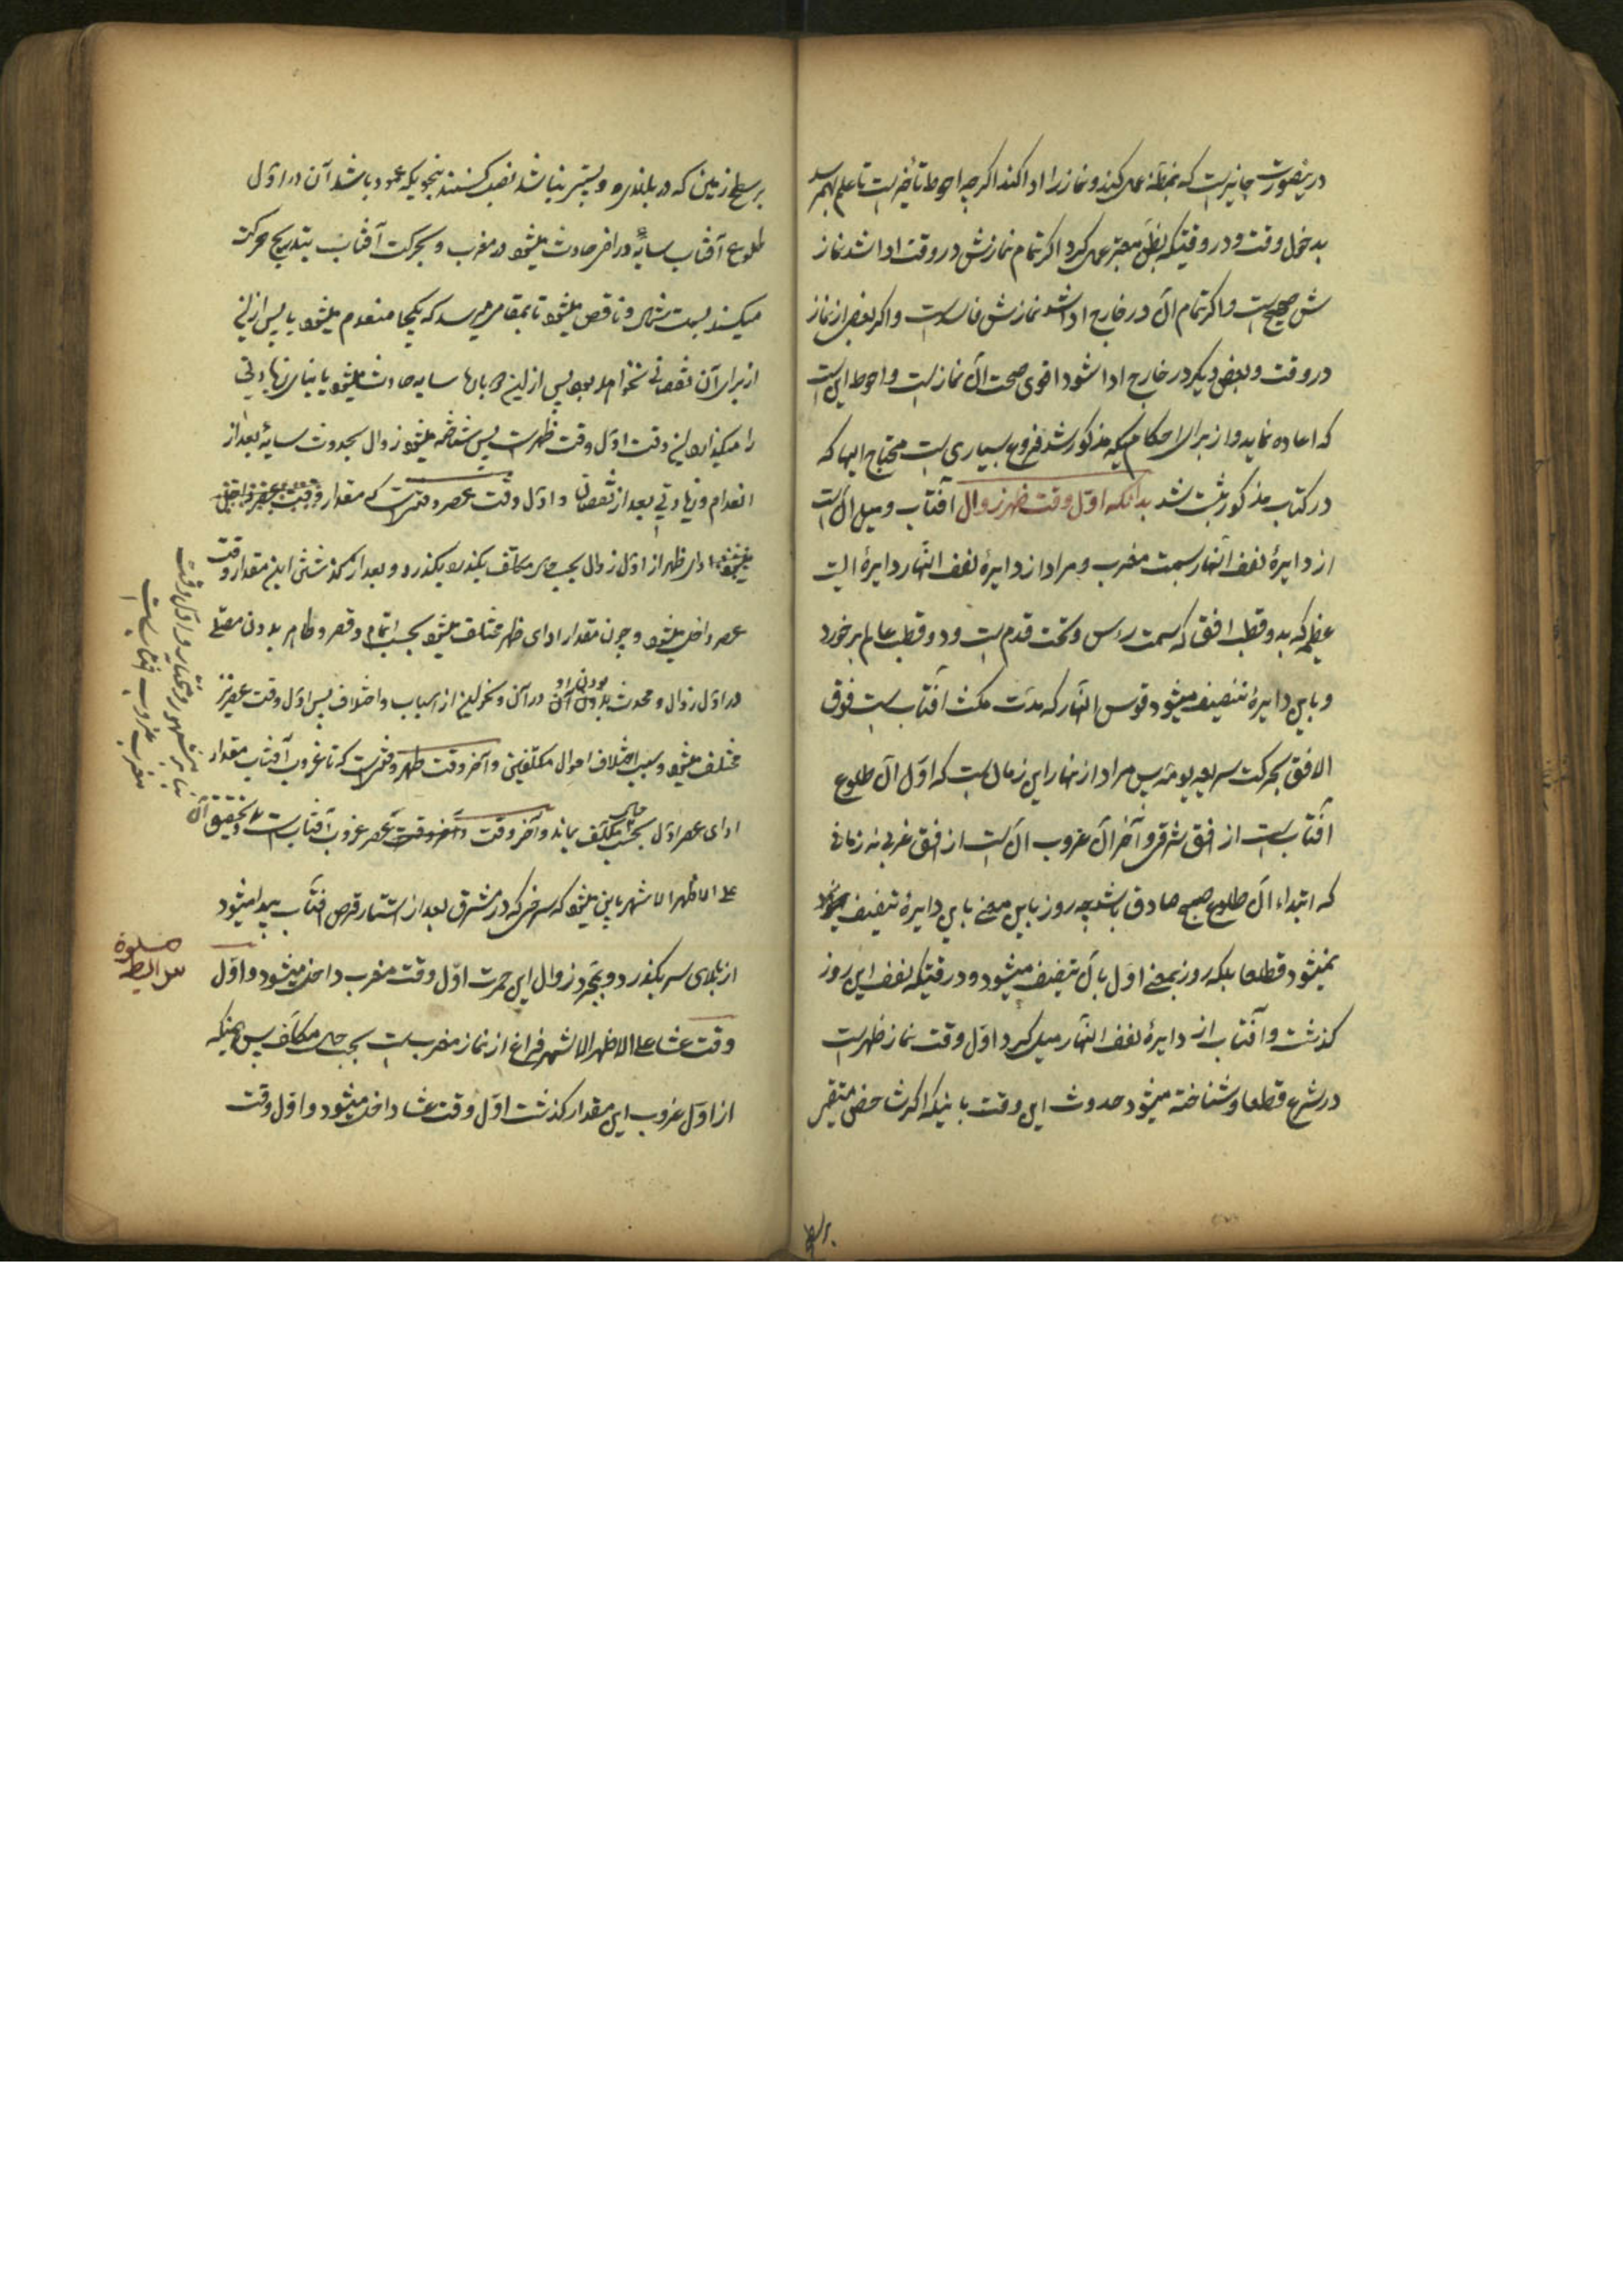 درینصورت جایز است که بمظنه عمل کند و نماز را ادا کند اکرچه احوط تأخیر است تا علم بهم رسد
بدخول وقت و در وقتیکه بظن معتبر عمل کرد اکر تمام نمازش در وقت ادا شد نماز
ش صحیح است و اکر تمام آن در خارج ادا شد نمازش فاسد است و اکر بعض از نماز
در وقت و بعض دیکر در خارج ادا شود اقوی صحت آن نماز است و احوط این است
که اعاده نماید و از برای احکام که مذکور شد فروع بسیاری است محتاج الیها که
در کتاب مذکور ثبت شد بدانکه اول وقت ظهر زوال آفتاب و میل آن است
از دایرهٔ نصف النهار بسمت مغرب و مراد از دایرهٔ نصف النهار دایرهٔ است
عظیمه که بدو قطب افق که سمت رءس و تحت قدم است و دو قطب عالم برخورد
و باین دایرهٔ تنصیف میشود قوس النهار که مدت مکث آفتاب است فوق
الافق بحرکت سریعه یومیه پس مراد از نهار این زمان است که اول آن طلوع
آفتاب است از افق شرقی و آخر آن غروب آن است از افق غربی نه زمانی
که ابتداء آن طلوع صبح صادق باشد چه روز باین معنی باین دایرهٔ تنصیف
نمیشود قطعا بلکه روز بمعنی اول بآن تنصیف میشود و در وقتیکه نصف این روز
کذشت و آفتاب از دایرهٔ نصف النهار میل کرد اول وقت نماز ظهر است
در شرع قطعا و شناخته میشود حدوث این وقت باینکه اکر شاخص مستقیم
بر سطح زمین که در بلندی و پستی نباشد نصب کنند بنحویکه عمود باشد آن در اول
طلوع آفتاب سایهٔ دراز حادث میشود در مغرب و بحرکت آفتاب بتدریج حرکت
میکند بسمت شمال و ناقص میشود تا بمقامی میرسد که یکجا منعدم میشود یا پس ازین
از برای آن نقصانی نخواهد بود پس ازین در بلدها سایه حادث میشود یا بنای زیادتی
را میکذارد این وقت اول وقت ظهر است پس شناخته میشود زوال بحدوث سایهٔ بعد از
انعدام و زیادتی بعد از نقصان و اول وقت عصر وقتی است که مقدار
ادای ظهر از اول زوال بحسب حال مکلف بکذرد و بعد از کذشتن این مقدار وقت
عصر داخل میشود و چون مقدار ادای ظهر مختلف میشود بحسب اتمام و قصر و طاهر بودن مصلی
در اول زوال و محدث بودن او در آن و نحو این از اسباب و اختلاف پس اول وقت عصر نیز
مختلف میشود بسبب اختلاف احوال مکلفین و آخر وقت ظهر وقتی است که تا غروب آفتاب مقدار
ادای عصر اول بحسب حال مکلف بماند و آخر وقت عصر غروب آفتاب است و تحقیق آن
علی الاظهر الاشهر باین میشود که سرخی که در مشرق بعد از استتار قرص آفتاب پیدا میشود
از بالای سر بکذرد و بمجرد زوال این حمرت اول وقت مغرب داخل میشود و اول
وقت عشا علی الاظهر الاشهر فراغ از نماز مغرب است بحسب حال مکلف پس همینکه
از اول غروب این مقدار کذشت اول وقت عشا داخل میشود و اول وقت